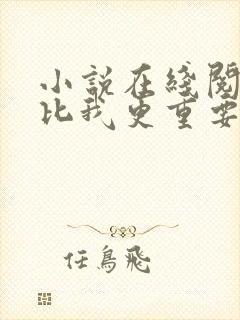 小說在綫閱
比我更重要
任鳥飛